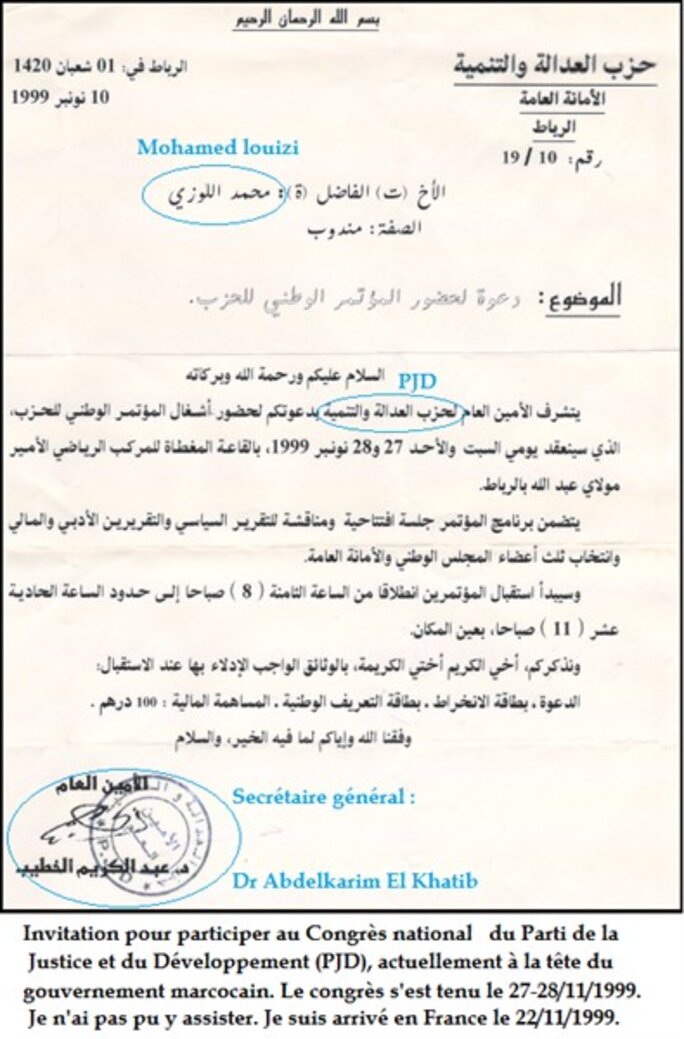 بسم الله الرحمان الرحيم
حزب العدالة والتنمية
الأمانة العامة
الرباط
رقم: 10 / 19
الرباط في: 01 شعبان 1420
10 نونبر 1999
Mohamed louizi
الأخ (ت) الفاضل (ة): محمد اللوزي
الصفة: مندوب
الموضوع: دعوة لحضور المؤتمر الوطني للحزب.
السلام عليكم ورحمة الله وبركاته
PJD
يتشرف الأمين العام لحزب العدالة والتنمية بدعوتكم لحضور أشغال المؤتمر الوطني للحزب،
الذي سينعقد يومي السبت والأحد 27 و28 نونبر 1999، بالقاعة المغطاة للمركب الرياضي الأمير
مولاي عبد الله بالرباط.
يتضمن برنامج المؤتمر جلسة افتتاحية ومناقشة للتقرير السياسي والتقريرين الأدبي والمالي
وانتخاب ثلث أعضاء المجلس الوطني والأمانة العامة.
وسيبدأ استقبال المؤتمرين انطلاقا من الساعة الثامنة ( 8 ) صباحا إلى حدود الساعة الحادية
عشر ( 11 ) صباحا، بعين المكان.
ونذكركم، أخي الكريم أختي الكريمة، بالوثائق الواجب الإدلاء بها عند الاستقبال:
الدعوة . بطاقة الانخراط . بطاقة التعريف الوطنية . المساهمة المالية : 100 درهم .
وفقنا الله وإياكم لما فيه الخير، والسلام
الأمين العام
د. عبد الكريم الخطيب
P.J.D
Secrétaire général :
Dr Abdelkarim El Khatib
Invitation pour participer au Congrès national du Parti de la
Justice et du Développement (PJD), actuellement à la tête du
gouvernement marcocain. Le congrès s'est tenu le 27-28/11/1999.
Je n'ai pas pu y assister. Je suis arrivé en France le 22/11/1999.